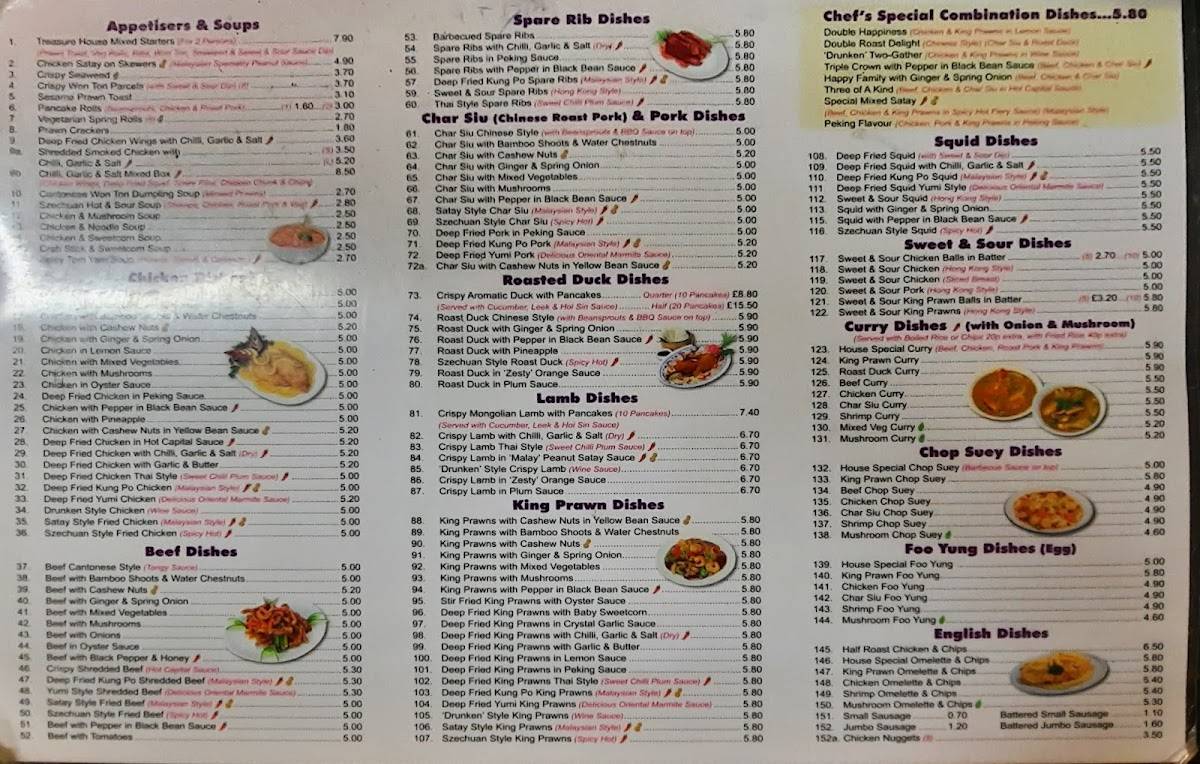 Appetisers & Soups
1. Treasure House Mixed Starters (For 2 Persons) 7.90
2. Chicken Satay on Skewers (Malaysian Specialty Peanut Sauce) 4.90
3. Crispy Seaweed 3.70
4. Crispy Won Ton Parcels (with Sweet & Sour Dip) (8) 3.70
5. Sesame Prawn Toast 3.10
6. Pancake Rolls (Beansprouts, Chicken & Roast Pork) (1) 1.60 (2) 3.00
7. Vegetarian Spring Rolls 2.70
8. Prawn Crackers 1.80
9. Deep Fried Chicken Wings with Chilli, Garlic & Salt 3.60
9a. Shredded Smoked Chicken with (S) 3.50
Chilli, Garlic & Salt (L) 5.20
9b. Chilli, Garlic & Salt Mixed Box 8.50
10. Cantonese Won Ton Dumpling Soup (Minced Prawns) 2.70
11. Szechuan Hot & Sour Soup 2.80
Chicken & Mushroom Soup 2.50
Chicken & Noodle Soup 2.50
Chicken & Sweetcorn Soup 2.50
Crab Stick & Sweetcorn Soup 2.50
2.70
Chicken Dishes
5.00
& Water Chestnuts 5.00
18. Chicken with Cashew Nuts 5.20
19. Chicken with Ginger & Spring Onion 5.00
20. Chicken in Lemon Sauce 5.00
21. Chicken with Mixed Vegetables 5.00
22. Chicken with Mushrooms 5.00
23. Chicken in Oyster Sauce 5.00
24. Deep Fried Chicken in Peking Sauce 5.00
25. Chicken with Pepper in Black Bean Sauce 5.00
26. Chicken with Pineapple 5.00
27. Chicken with Cashew Nuts in Yellow Bean Sauce 5.20
28. Deep Fried Chicken in Hot Capital Sauce 5.20
29. Deep Fried Chicken with Chilli, Garlic & Salt (Dry) 5.20
30. Deep Fried Chicken with Garlic & Butter 5.20
31. Deep Fried Chicken Thai Style (Sweet Chilli Plum Sauce) 5.00
32. Deep Fried Kung Po Chicken (Malaysian Style) 5.00
33. Deep Fried Yumi Chicken (Delicious Oriental Marmite Sauce) 5.20
34. Drunken Style Chicken (Wine Sauce) 5.00
35. Satay Style Fried Chicken (Malaysian Style) 5.00
36. Szechuan Style Fried Chicken (Spicy Hot) 5.00
Beef Dishes
37. Beef Cantonese Style (Tangy Sauce) 5.00
38. Beef with Bamboo Shoots & Water Chestnuts 5.00
39. Beef with Cashew Nuts 5.20
40. Beef with Ginger & Spring Onion 5.00
41. Beef with Mixed Vegetables 5.00
42. Beef with Mushrooms 5.00
43. Beef with Onions 5.00
44. Beef in Oyster Sauce 5.00
45. Beef with Black Pepper & Honey 5.00
46. Crispy Shredded Beef (Hot Capital Sauce) 5.30
47. Deep Fried Kung Po Shredded Beef (Malaysian Style) 5.30
48. Yumi Style Shredded Beef (Delicious Oriental Marmite Sauce) 5.30
49. Satay Style Fried Beef (Malaysian Style) 5.00
50. Szechuan Style Fried Beef (Spicy Hot) 5.00
51. Beef with Pepper in Black Bean Sauce 5.00
52. Beef with Tomatoes 5.00
Spare Rib Dishes
53. Barbecued Spare Ribs 5.80
54. Spare Ribs with Chilli, Garlic & Salt (Dry) 5.80
55. Spare Ribs in Peking Sauce 5.80
56. Spare Ribs with Pepper in Black Bean Sauce 5.80
57. Deep Fried Kung Po Spare Ribs (Malaysian Style) 5.80
59. Sweet & Sour Spare Ribs (Hong Kong Style) 5.80
60. Thai Style Spare Ribs (Sweet Chilli Plum Sauce) 5.80
Char Siu (Chinese Roast Pork) & Pork Dishes
61. Char Siu Chinese Style (with Beansprouts & BBQ Sauce on top) 5.00
62. Char Siu with Bamboo Shoots & Water Chestnuts 5.00
63. Char Siu with Cashew Nuts 5.20
64. Char Siu with Ginger & Spring Onion 5.00
65. Char Siu with Mixed Vegetables 5.00
66. Char Siu with Mushrooms 5.00
67. Char Siu with Pepper in Black Bean Sauce 5.00
68. Satay Style Char Siu (Malaysian Style) 5.00
69. Szechuan Style Char Siu (Spicy Hot) 5.00
70. Deep Fried Pork in Peking Sauce 5.00
71. Deep Fried Kung Po Pork (Malaysian Style) 5.20
72. Deep Fried Yumi Pork (Delicious Oriental Marmite Sauce) 5.20
72a. Char Siu with Cashew Nuts in Yellow Bean Sauce 5.20
Roasted Duck Dishes
73. Crispy Aromatic Duck with Pancakes Quarter (10 Pancakes) £8.80
(Served with Cucumber, Leek & Hoi Sin Sauce) Half (20 Pancakes) £15.50
74. Roast Duck Chinese Style (with Beansprouts & BBQ Sauce on top) 5.90
75. Roast Duck with Ginger & Spring Onion 5.90
76. Roast Duck with Pepper in Black Bean Sauce 5.90
77. Roast Duck with Pineapple 5.90
78. Szechuan Style Roast Duck (Spicy Hot) 5.90
79. Roast Duck in 'Zesty' Orange Sauce 5.90
80. Roast Duck in Plum Sauce 5.90
Lamb Dishes
81. Crispy Mongolian Lamb with Pancakes (10 Pancakes) 7.40
(Served with Cucumber, Leek & Hoi Sin Sauce)
82. Crispy Lamb with Chilli, Garlic & Salt (Dry) 6.70
83. Crispy Lamb Thai Style (Sweet Chilli Plum Sauce) 6.70
84. Crispy Lamb in 'Malay' Peanut Satay Sauce 6.70
85. 'Drunken' Style Crispy Lamb (Wine Sauce) 6.70
86. Crispy Lamb in 'Zesty' Orange Sauce 6.70
87. Crispy Lamb in Plum Sauce 6.70
King Prawn Dishes
88. King Prawns with Cashew Nuts in Yellow Bean Sauce 5.80
89. King Prawns with Bamboo Shoots & Water Chestnuts 5.80
90. King Prawns with Cashew Nuts 5.80
91. King Prawns with Ginger & Spring Onion 5.80
92. King Prawns with Mixed Vegetables 5.80
93. King Prawns with Mushrooms 5.80
94. King Prawns with Pepper in Black Bean Sauce 5.80
95. Stir Fried King Prawns with Oyster Sauce 5.80
96. Deep Fried King Prawns with Baby Sweetcorn 5.80
97. Deep Fried King Prawns in Crystal Garlic Sauce 5.80
98. Deep Fried King Prawns with Chilli, Garlic & Salt (Dry) 5.80
99. Deep Fried King Prawns with Garlic & Butter 5.80
100. Deep Fried King Prawns in Lemon Sauce 5.80
101. Deep Fried King Prawns in Peking Sauce 5.80
102. Deep Fried King Prawns Thai Style (Sweet Chilli Plum Sauce) 5.80
103. Deep Fried Kung Po King Prawns (Malaysian Style) 5.80
104. Deep Fried Yumi King Prawns (Delicious Oriental Marmite Sauce) 5.80
105. 'Drunken' Style King Prawns (Wine Sauce) 5.80
106. Satay Style King Prawns (Malaysian Style) 5.80
107. Szechuan Style King Prawns (Spicy Hot) 5.80
Chef's Special Combination Dishes...5.80
Double Happiness (Chicken & King Prawns in Lemon Sauce)
Double Roast Delight (Chinese Style) (Char Siu & Roast Duck)
'Drunken' Two-Gather (Chicken & King Prawns in Wine Sauce)
Triple Crown with Pepper in Black Bean Sauce (Beef, Chicken & Char Siu)
Happy Family with Ginger & Spring Onion (Beef, Chicken & Char Siu)
Three of A Kind (Beef, Chicken & Char Siu in Hot Capital Sauce)
Special Mixed Satay
(Beef, Chicken & King Prawns in Spicy Hot Fiery Sauce) (Malaysian Style)
Peking Flavour (Chicken, Pork & King Prawns in Peking Sauce)
Squid Dishes
108. Deep Fried Squid (with Sweet & Sour Dip) 5.50
109. Deep Fried Squid with Chilli, Garlic & Salt 5.50
110. Deep Fried Kung Po Squid (Malaysian Style) 5.50
111. Deep Fried Squid Yumi Style (Delicious Oriental Marmite Sauce) 5.50
112. Sweet & Sour Squid (Hong Kong Style) 5.50
113. Squid with Ginger & Spring Onion 5.50
115. Squid with Pepper in Black Bean Sauce 5.50
116. Szechuan Style Squid (Spicy Hot) 5.50
Sweet & Sour Dishes
117. Sweet & Sour Chicken Balls in Batter (5) 2.70 (10) 5.00
118. Sweet & Sour Chicken (Hong Kong Style) 5.00
119. Sweet & Sour Chicken (Sliced Breast) 5.00
120. Sweet & Sour Pork (Hong Kong Style) 5.00
121. Sweet & Sour King Prawn Balls in Batter (5) £3.20 (10) 5.80
122. Sweet & Sour King Prawns (Hong Kong Style) 5.80
Curry Dishes (with Onion & Mushroom)
(Served with Boiled Rice or Chips 20p extra, with Fried Rice 40p extra)
123. House Special Curry (Beef, Chicken, Roast Pork & King Prawns) 5.90
124. King Prawn Curry 5.90
125. Roast Duck Curry 5.90
126. Beef Curry 5.50
127. Chicken Curry 5.50
128. Char Siu Curry 5.50
129. Shrimp Curry 5.50
130. Mixed Veg Curry 5.20
131. Mushroom Curry 5.20
Chop Suey Dishes
132. House Special Chop Suey (Barbecue Sauce on top) 5.00
133. King Prawn Chop Suey 5.80
134. Beef Chop Suey 4.90
135. Chicken Chop Suey 4.90
136. Char Siu Chop Suey 4.90
137. Shrimp Chop Suey 4.90
138. Mushroom Chop Suey 4.60
Foo Yung Dishes (Egg)
139. House Special Foo Yung 5.00
140. King Prawn Foo Yung 5.80
141. Chicken Foo Yung 4.90
142. Char Siu Foo Yung 4.90
143. Shrimp Foo Yung 4.90
144. Mushroom Foo Yung 4.60
English Dishes
145. Half Roast Chicken & Chips 6.50
146. House Special Omelette & Chips 5.80
147. King Prawn Omelette & Chips 5.80
148. Chicken Omelette & Chips 5.40
149. Shrimp Omelette & Chips 5.40
150. Mushroom Omelette & Chips 5.30
151. Small Sausage 0.70 Battered Small Sausage 1.10
152. Jumbo Sausage 1.20 Battered Jumbo Sausage 1.60
152a. Chicken Nuggets 3.50